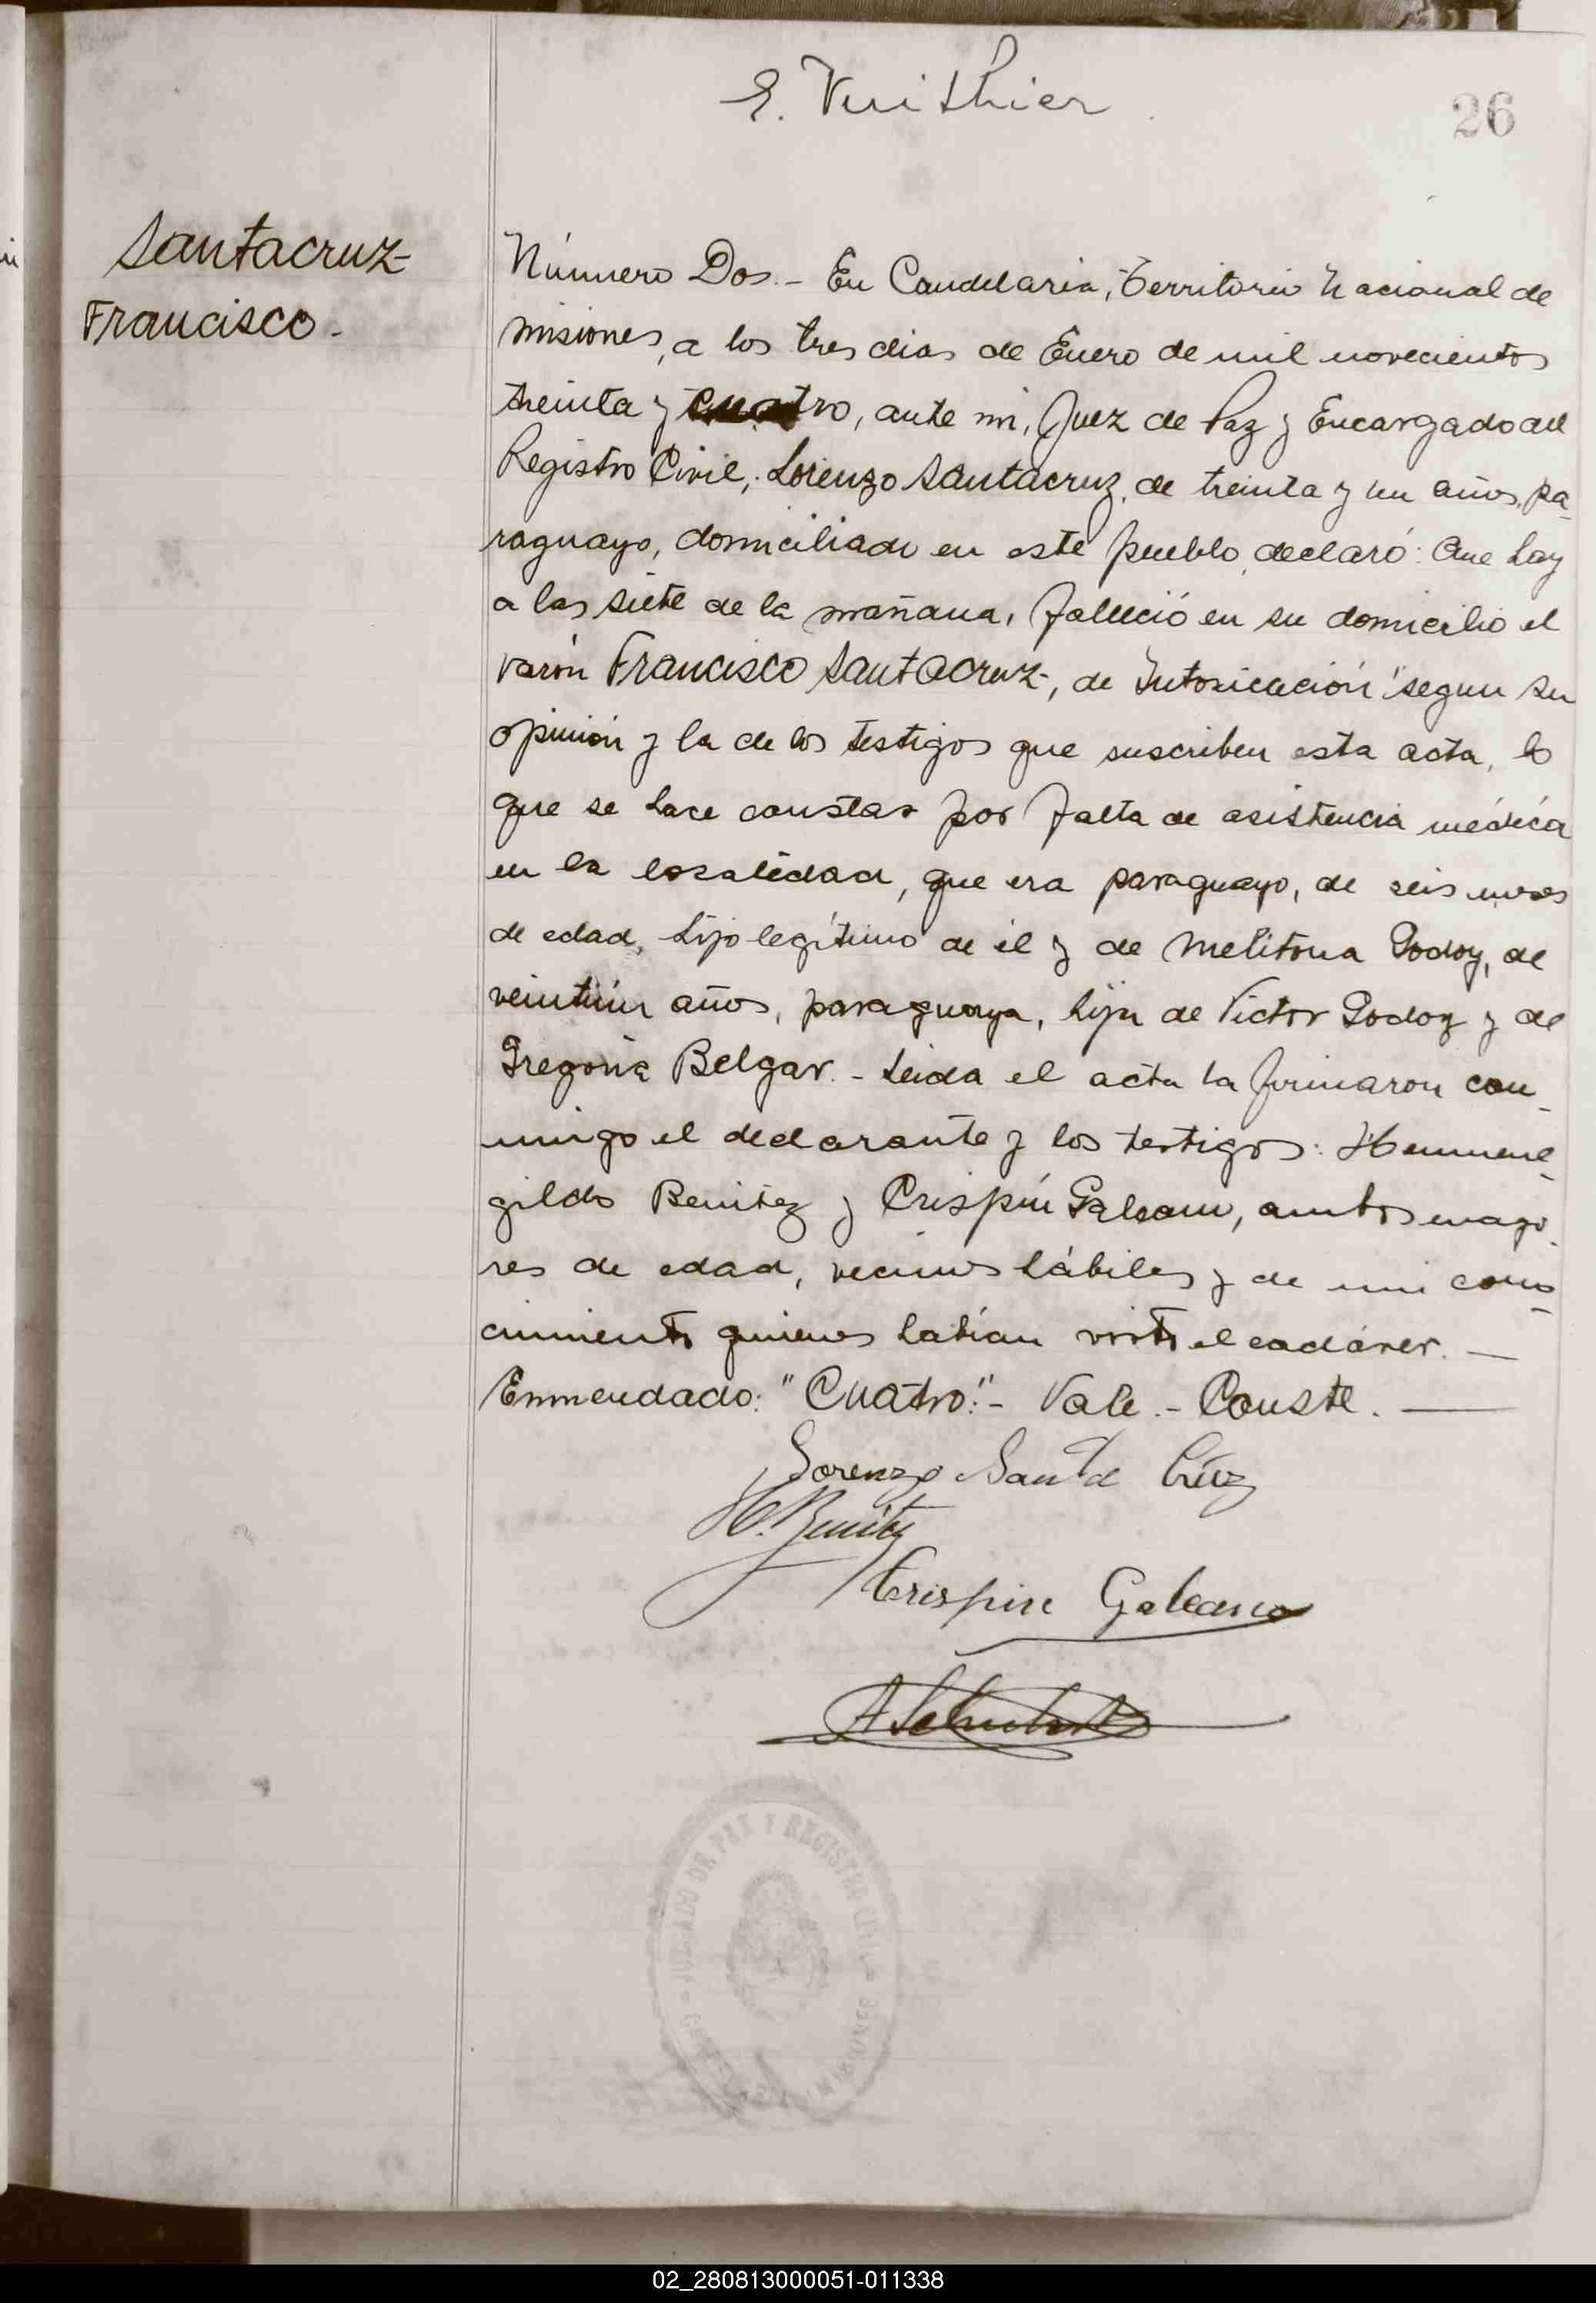 E. Vuithier
26
Santacruz-
Francisco.-
Número Dos.- En Candelaria, Territorio Nacional de
Misiones, a los tres dias de Enero de mil novecientos
treinta y cuatro, ante mi, Juez de Paz y Encargado del
Registro Civil, Lorenzo Santacruz, de treinta y un años, pa-
raguayo, domiciliado en este pueblo, declaró: Que hoy
a las siete de la mañana, falleció en su domicilio el
varón Francisco Santacruz-, de Intoxicación" segun su
opinión y la de los testigos que suscriben esta acta, lo
que se hace constar por falta de asistencia médica
en la localidad, que era paraguayo, de seis meses
de edad, hijo legítimo de él y de Melitona Godoy, de
veintiún años, paraguaya, hija de Victor Godoy y de
Gregoria Belgar.- Leida el acta la firmaron con-
migo el declarante y los testigos: Hermene-
gildo Benitez y Crispín Galeano, ambos mayo-
res de edad, vecinos hábiles y de mi cono-
cimiento quienes habían visto el cadáver. —
Enmendado: "Cuatro":- Vale.- Conste. —
Lorenzo Santa Cruz
H. Benitez
Crispin Galeano
JUZGADO DE PAZ Y REGISTRO CIVIL
MISIONES
02_280813000051-011338